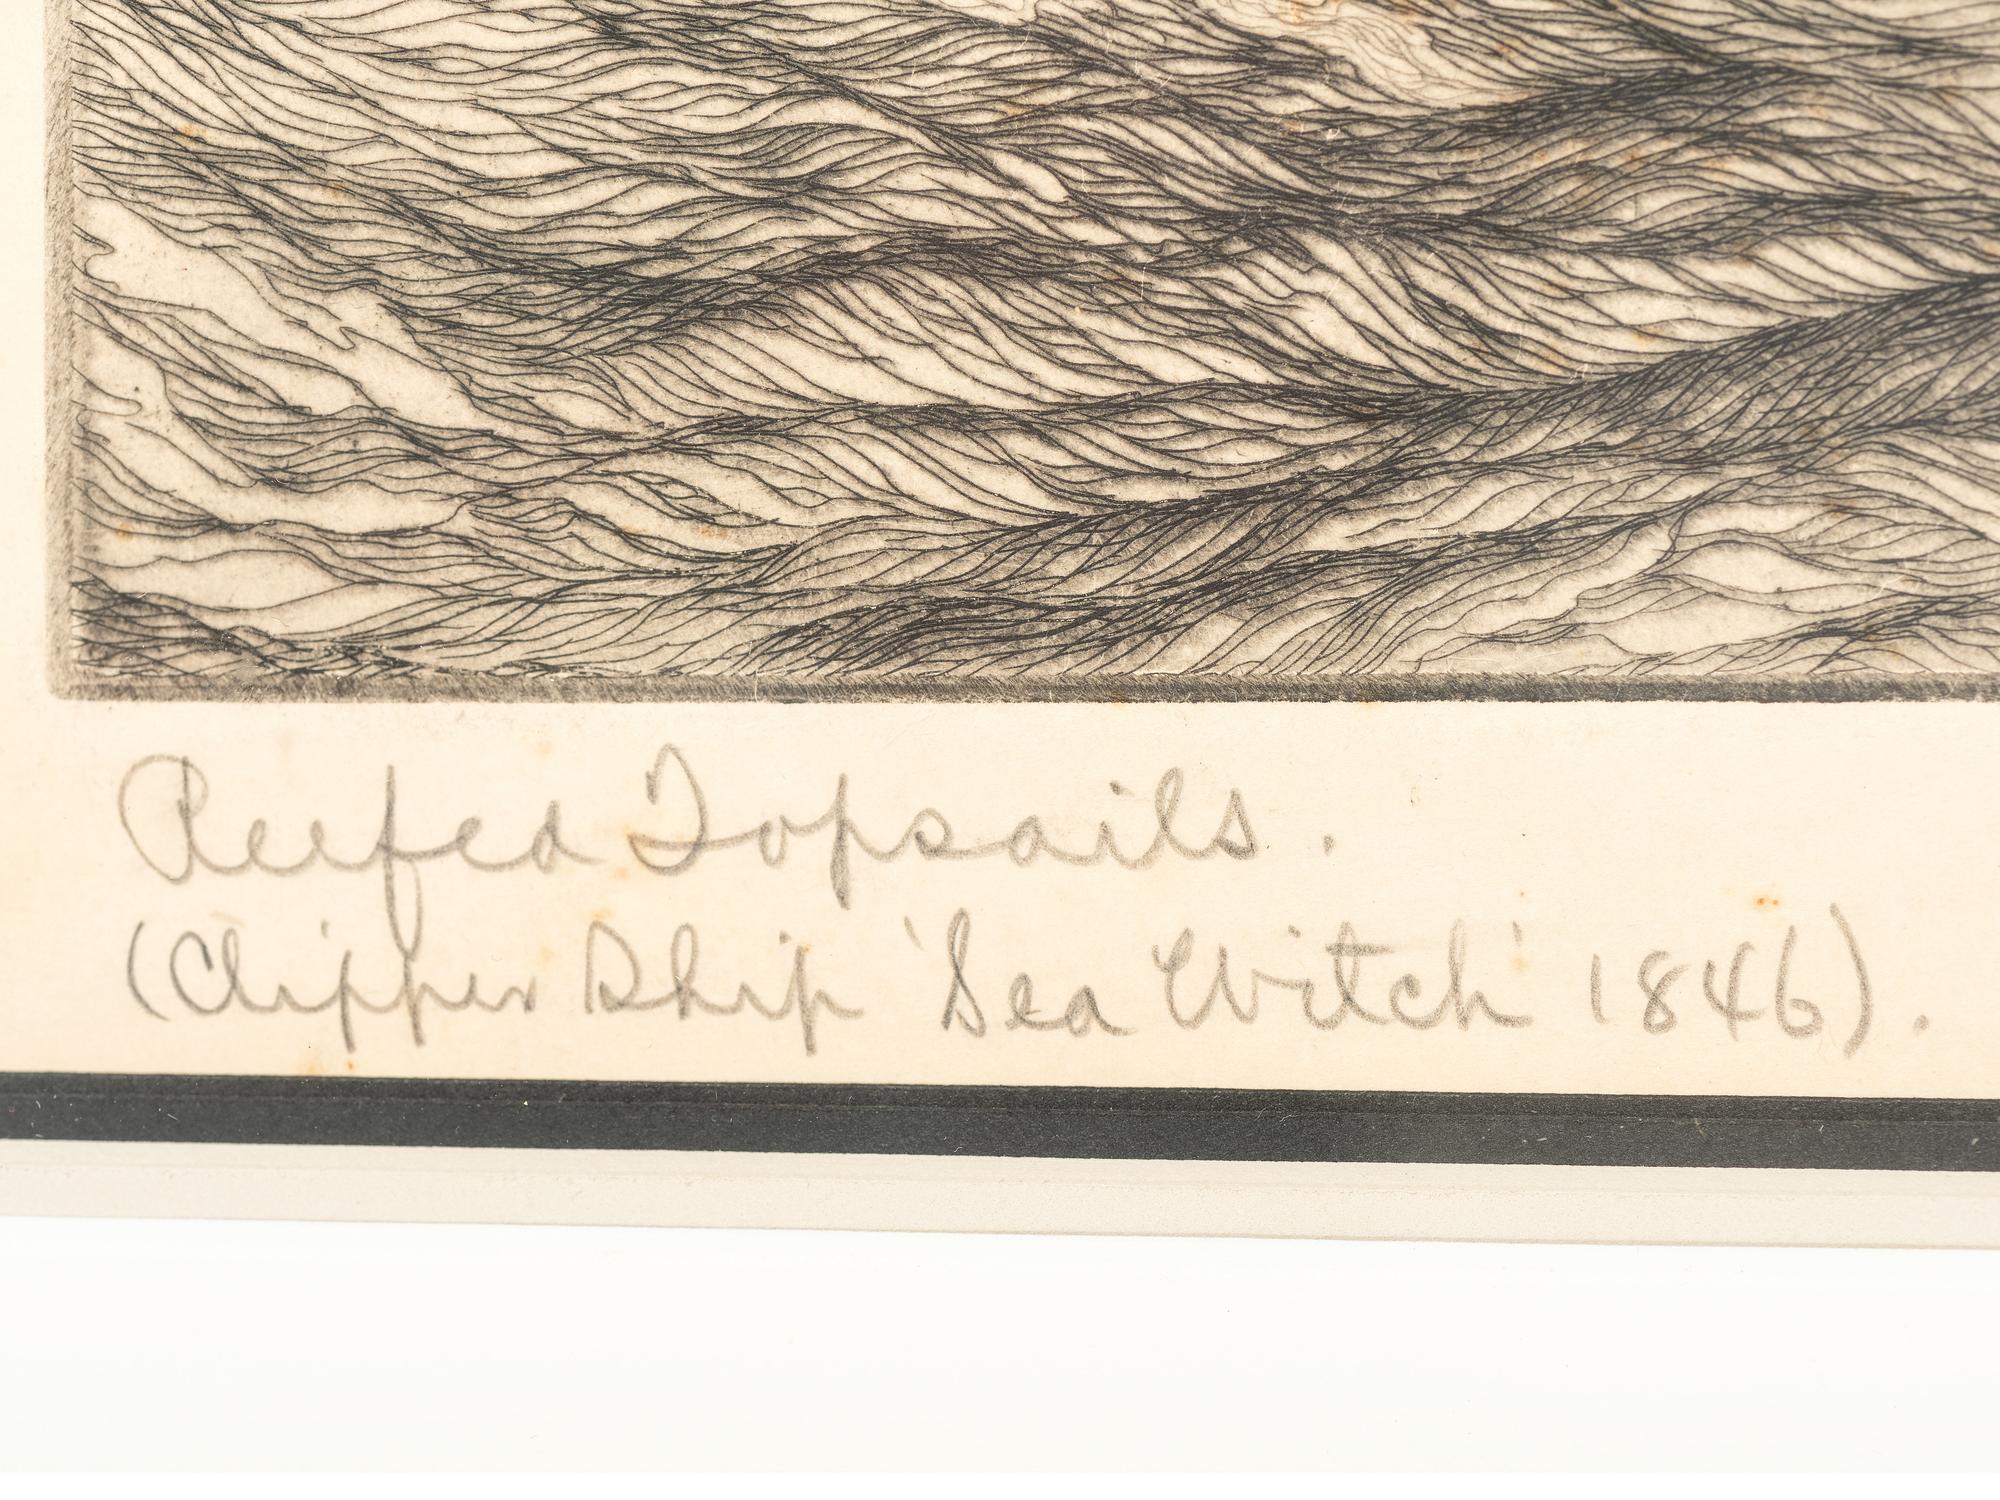 Reefed Topsails.
(Clipper Ship 'Sea Witch' 1846).